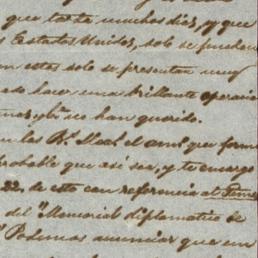 que tarte muchos dias, y que
s Estados Unidos, solo se pueden
n estos solo se presentan muy
ado hace una brillante operacio
no han querido.
que form
probable que asi sea, y te encargo
22. de este con referencia al Times
del "Memorial diplomatico de
" Podemos anunciar que em